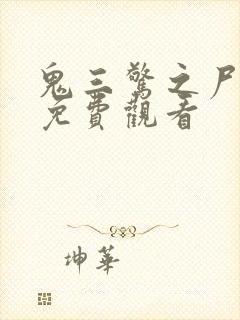 鬼三驚之尸
免費觀看
坤華